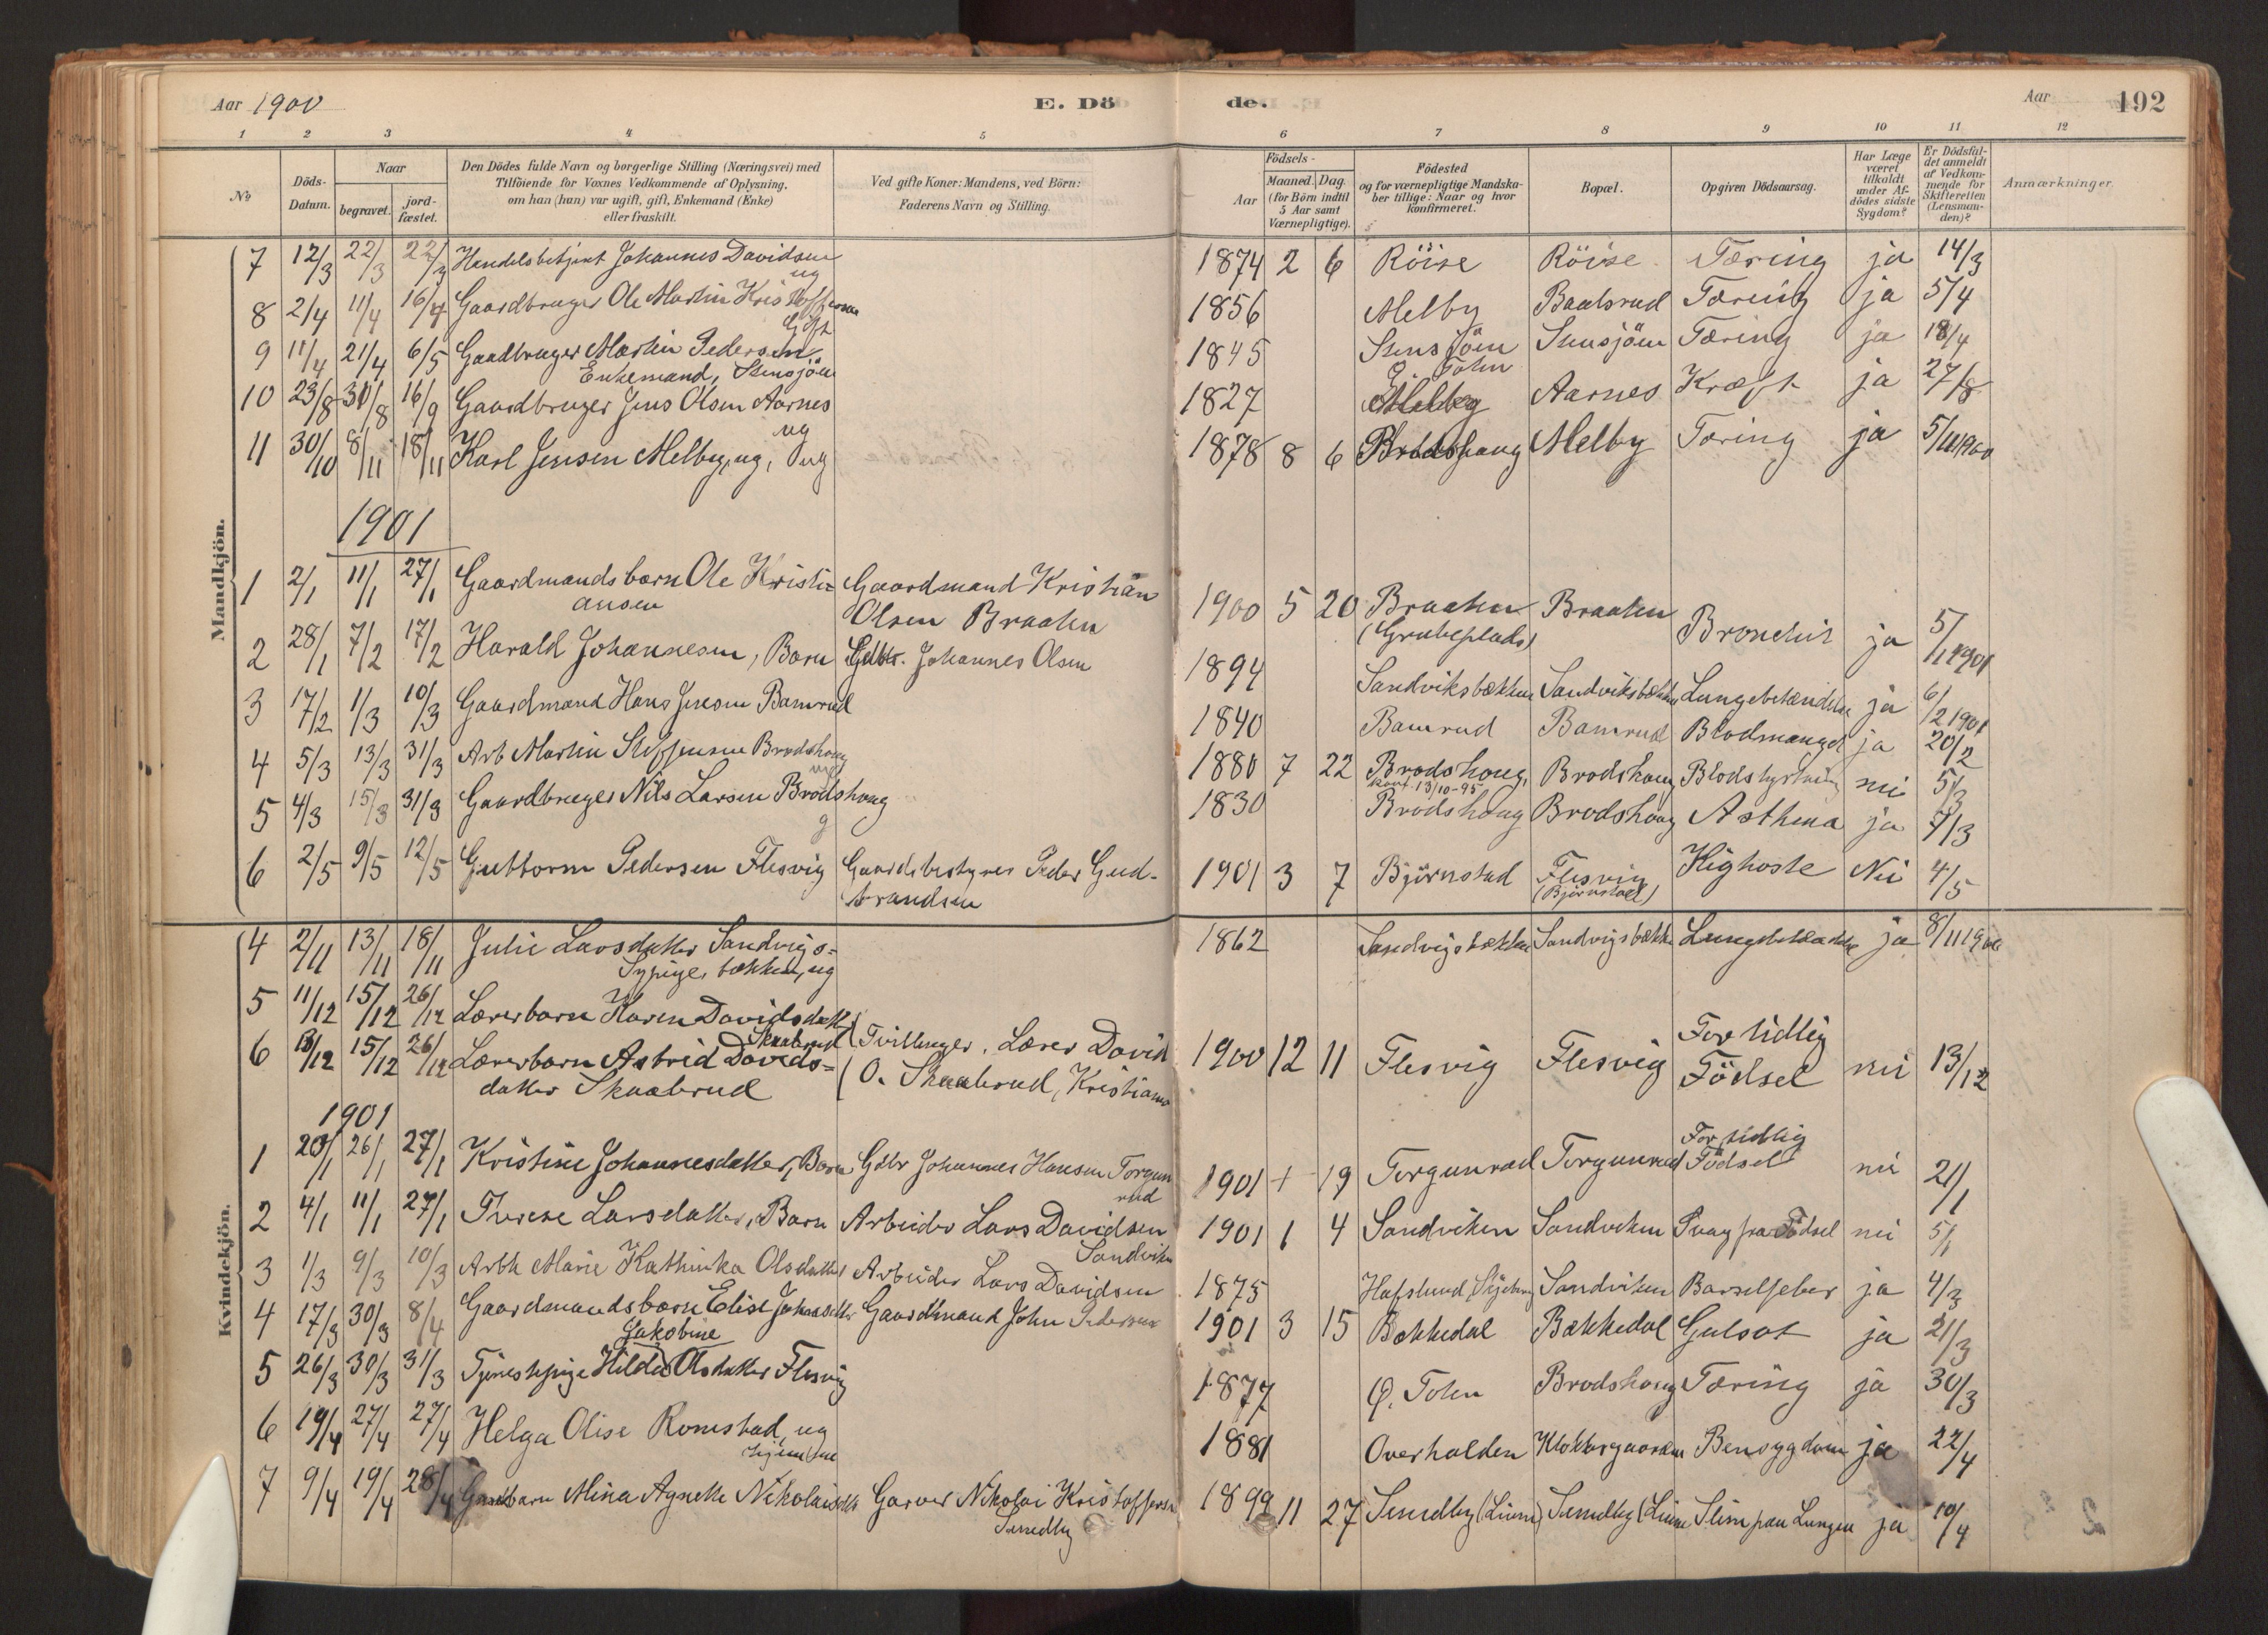 Aar 1900
E. Dö
de.
Aar
192
1 2 3 4 5 6 7 8 9 10 11 12
№
Döds-
Datum.
Naar
begravet.
jord-
fæstet.
Den Dödes fulde Navn og borgerlige Stilling (Næringsvei) med
Tilföiende for Voxnes Vedkommende af Oplysning,
om han (hun) var ugift, gift, Enkemand (Enke)
eller fraskilt.
Ved gifte Koner: Mandens, ved Börn:
Faderens Navn og Stilling.
Aar
Födsels-
Maaned. Dag.
(for Börn indtil
5 Aar samt
Værnepligtige).
Födested
og for værnepligtige Mandska-
ber tillige: Naar og hvor
konfirmeret.
Bopæl.
Opgiven Dödsaarsag.
Har Læge
været
tilkaldt
under Af-
dödes sidste
Sygdom?
Er Dödsfal-
det anmeldt
af Vedkom-
mende for
Skifteretten
(Lensman-
den)?
Anmærkninger.
Mandkjön.
7 12/3 22/3 22/3 Handelsbetjent Johannes Davidsen 1874 2 6 Röise Röise Tæring ja 14/3
ug
8 2/4 11/4 16/4 Gaardbruger Ole Martin Kristoffersen 1856 Melby Baalsrud Tæring ja 5/4
Gift
9 11/4 21/4 6/5 Gaardbruger Martin Pedersen 1845 Stensjöen Stensjöen Tæring ja 18/4
Enkemand, Stensjöen
10 23/8 31/8 16/9 Gaardbruger Jens Olsen Aarnes 1827 Ø. Tohn Aarnes Kræft ja 27/8
ug
11 30/10 8/11 18/11 Karl Jensen Melby, ug, 1878 8 6 Brodshaug Melby Tæring ja 5/11 1900
1901
1 2/1 11/1 27/1 Gaardmandsbarn Ole Kristi- Gaardmand Kristian 1900 5 20 Braaten Braaten Bronchit ja 5/1 1901
ansen Olsen Braaten (Grubeplads)
2 28/1 7/2 17/2 Harald Johannesen, Barn Gdbr. Johannes Olsen 1894 Sandviksbækken Sandviksbækken Lungebetændelse ja 6/2 1901
3 17/2 1/3 10/3 Gaardmand Hans Jensen Bamrud 1840 Bamrud Bamrud Blodmangel ja 20/2
4 5/3 13/3 31/3 Arb Martin Steffensen Brodshaug 1880 7 22 Brodshoug, Brodshoug Blodstyrtning nei 5/3
ug konf. 13/10-95
5 4/3 15/3 31/3 Gaardbruger Nils Larsen Brodshoug 1830 Brodshoug Brodshoug Asthma ja 7/3
g
6 2/5 9/5 12/5 Guttorm Pedersen Flesvig Gaardsbestyrer Peder Gud- 1901 3 7 Bjørnstad Flesvig Kighoste Nei 4/5
brandsen (Bjørnstad)
Kvindekjön.
4 2/11 13/11 18/11 Julie Larsdatter Sandvigs- 1862 Sandvigsbækken Sandvigsbækken Lungebetændelse ja 8/11 1900
Sypige, bækken, ug
5 11/12 15/12 26/12 Lærerbarn Karen Davidsdatter
Skaabrud
6 13/12 15/12 26/12 Lærerbarn Astrid Davids- (Tvillinger. Lærer David 1900 12 11 Flesvig Flesvig For tidlig Födsel nei 13/12
datter Skaabrud (O. Skaabrud, Kristiania
1901
1 20/1 26/1 27/1 Kristine Johannesdatter, Barn Gdbr Johannes Hansen Torgun 1901 + 19 Torgunrud Torgunrud For tidlig Födsel nei 21/1
rud
2 4/1 11/1 27/1 Therese Larsdatter, Barn Arbeider Lars Davidsen 1901 1 4 Sandviken Sandviken Svag fra Födsel nei 5/1
Sandviken
3 1/3 9/3 10/3 Arbk Marie Kathinka Olsdatter Arbeider Lars Davidsen 1875 Hafslund, Skjeberg Sandviken Barselfeber ja 4/3
4 17/3 30/3 8/4 Gaardmandsbarn Elise Johnsdtr Gaardmand John Pedersen 1901 3 15 Bækkedal Bækkedal Gulsot ja 21/3
Jakobine
5 26/3 30/3 31/3 Tjenestepige Hilda Olsdatter Flesvig 1877 Ø. Tohn Brodshoug Tæring ja 30/3
6 19/4 27/4 27/4 Helga Olise Romstad, ug 1881 Overhalden Klokkergaarden Bensygdom ja 22/4
hjemme
7 9/4 19/4 28/4 barn Mina Agnethe Nikolaisdtr Garver Nikolai Kristoffersen 1899 11 27 Smedby (Lium) Smedby (Lium Slim paa Lungen ja 10/4
Smedby